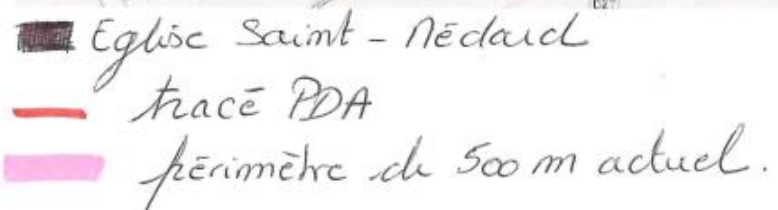 Eglise Saint - Médard
tracé PDA
périmètre de 500 m actuel.